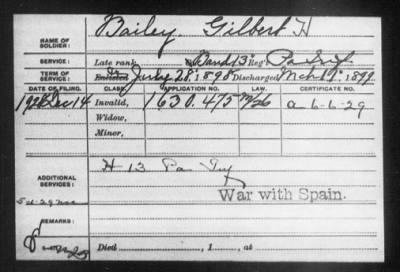 NAME OF SOLDIER: Bailey, Gilbert H
SERVICE: Late rank, Band 13" Reg't Pa Inf
TERM OF SERVICE: Enlisted July 28", 1898 Discharged Mch 11", 1899
DATE OF FILING. CLASS. APPLICATION NO. LAW. CERTIFICATE NO.
Dec 14 Invalid, 1630.475 a-6-6-29
Widow,
Minor,
ADDITIONAL SERVICES: H 13 Pa Inf
War with Spain.
REMARKS:
Died , 1 , at